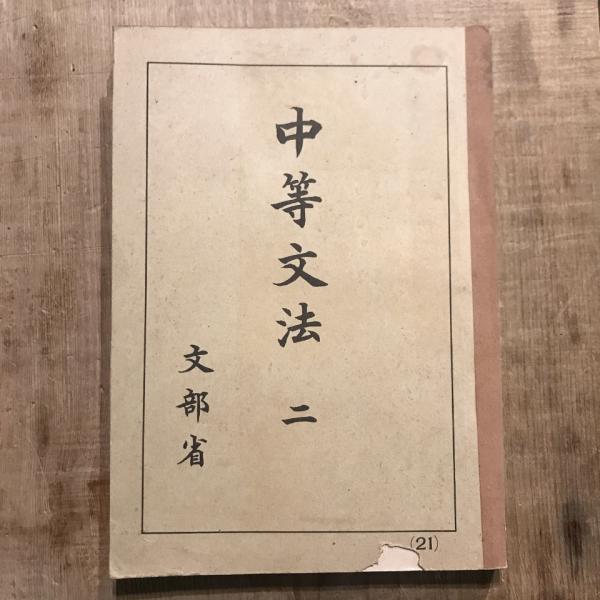 中等文法 二
文部省
(21)